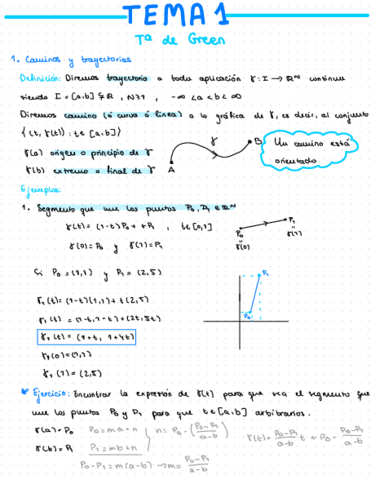 TEMA 1
Tª de Green
1. Caminos y trayectorias
Definición: Diremos trayectoria a toda aplicación γ: I → ℝᴺ continua
siendo I = [a,b] ⊊ ℝ, N≥1, -∞ < a < b < ∞
Diremos camino (ó curva ó línea) a la gráfica de γ, es decir, al conjunto
{(t, γ(t)): t ∈ [a,b]}
γ(a) origen o principio de γ
γ(b) extremo o final de γ
A
γ
B
Un camino está
orientado
Ejemplos:
1. Segmento que une los puntos P₀, P₁ ∈ ℝᴺ
γ(t) = (1-t)P₀ + t P₁, t ∈ [0,1]
γ(0) = P₀ y γ(1) = P₁
P₀
γ(0)
P₁
γ(1)
Si P₀ = (1,1) y P₁ = (2,5)
γ₁(t) = (1-t)(1,1) + t(2,5)
γ₁(t) = (1-t, 1-t) + (2t, 5t)
γ₁(t) = (1+t, 1+4t)
γ₁(0) = (1,1)
γ₁(1) = (2,5)
P₁
P₀
Ejercicio: Encontrar la expresión de γ(t) para que sea el segmento que
une los puntos P₀ y P₁ para que t ∈ [a,b] arbitrarios.
γ(a) = P₀ P₀ = ma + n
γ(b) = P₁ P₁ = mb + n
n = P₀ - (P₀-P₁ / a-b)
γ(t) = P₀-P₁ / a-b t + P₀ - P₀-P₁ / a-b
P₀-P₁ = m(a-b) → m = P₀-P₁ / a-b